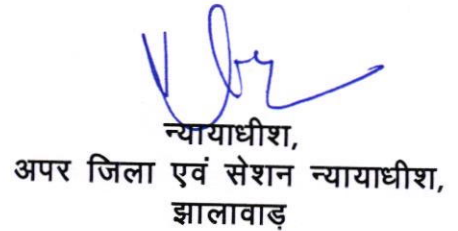 न्यायाधीश,
अपर जिला एवं सेशन न्यायाधीश,
झालावाड़